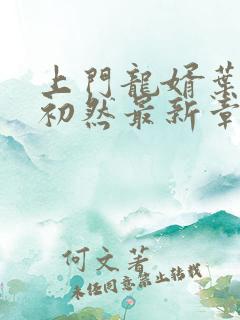 上門龍婿葉
初然最新章
何文著
未经同意禁止转载